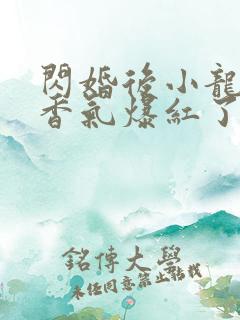 閃婚後小龍
香氣爆紅了
銘傳大學
未經同意禁止點載